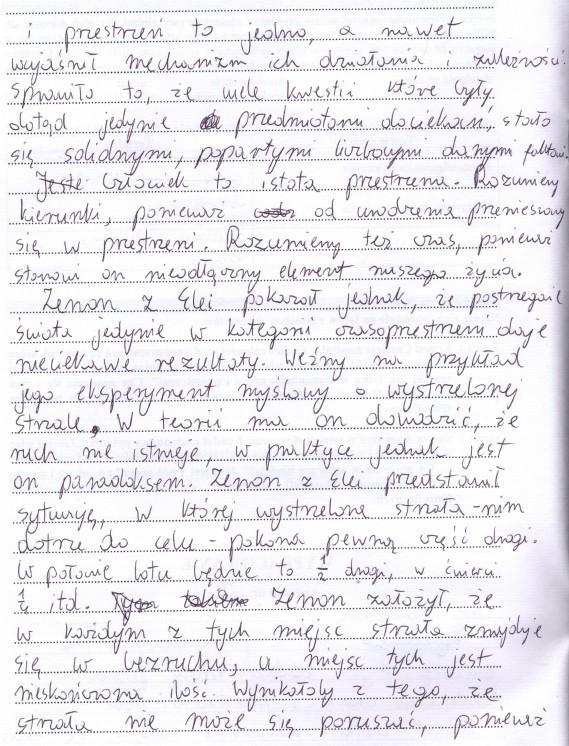 i przestrzeń to jedno, a nawet
wyjaśnił mechanizm ich działania i zależności.
Sprawiło to, że wiele kwestii które były
dotąd jedynie przedmiotami dociekań, stało
się solidnymi, popartymi liczbowymi danymi faktami.
Jeste Człowiek to istota przestrzenna. Rozumiemy
kierunki, ponieważ od urodzenia przemieszczamy
się w przestrzeni. Rozumiemy też czas, ponieważ
stanowi on nieodłączny element naszego życia.
Zenon z Elei pokazał jednak, że postrzeganie
świata jedynie w kategorii czasoprzestrzeni daje
nieciekawe rezultaty. Weźmy na przykład
jego eksperyment myślowy o wystrzelonej
strzale. W teorii ma on dowodzić, że
ruch nie istnieje, w praktyce jednak jest
on paradoksem. Zenon z Elei przedstawił
sytuację, w której wystrzelona strzała - nim
dotrze do celu - pokona pewną część drogi.
W połowie lotu będzie to 1/2 drogi, w ćwierci
itd. Zenon założył, że
w każdym z tych miejsc strzała znajduje
się w bezruchu, a miejsc tych jest
nieskończona ilość. Wynikałoby z tego, że
strzała nie może się poruszać, ponieważ